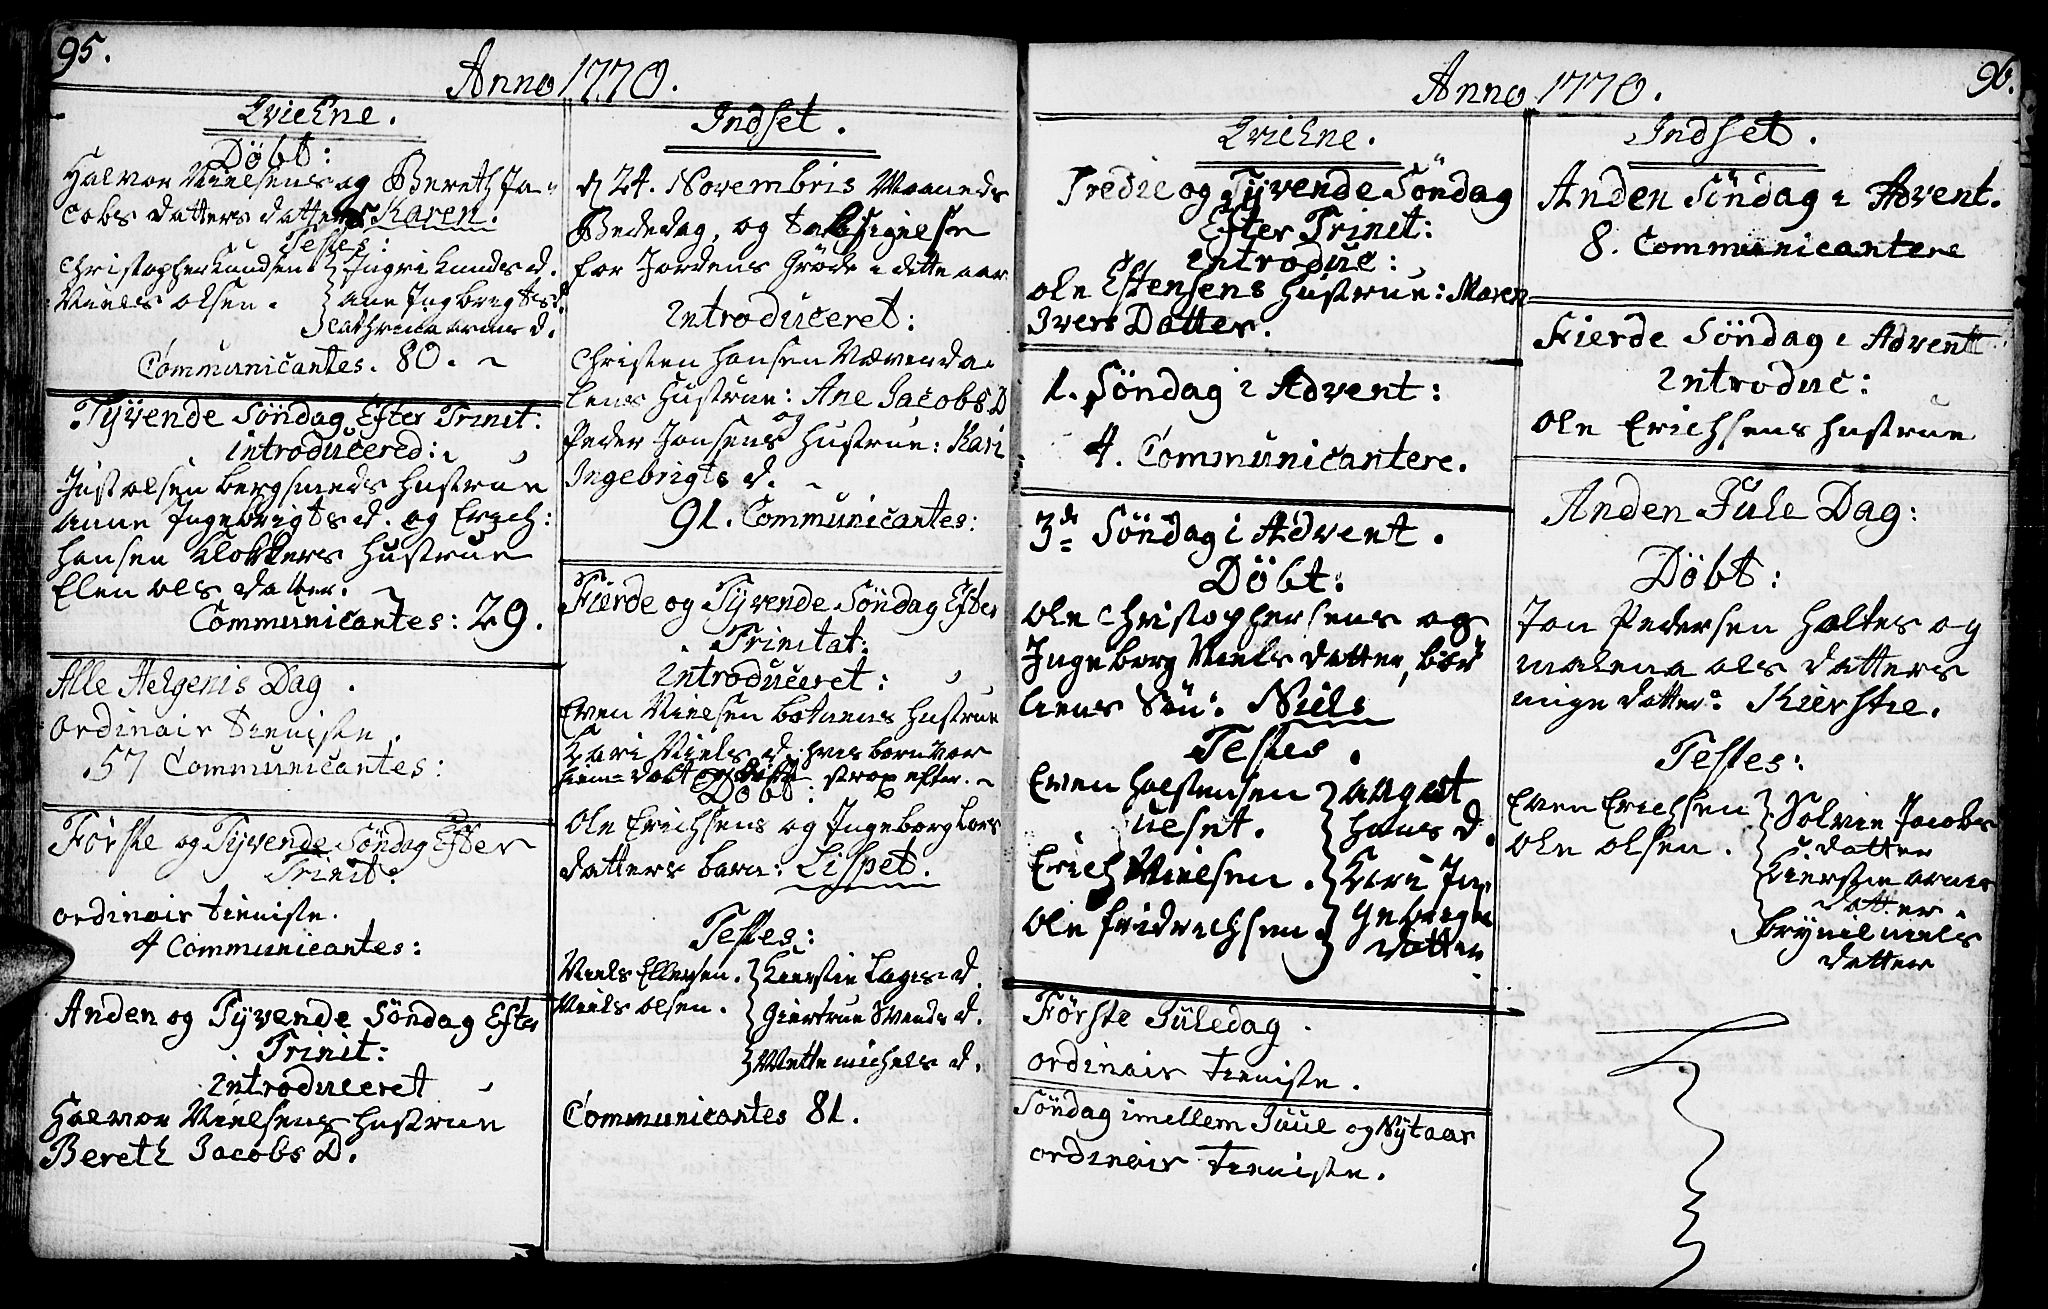 95.
Anno 1770.
Qviehne.
Döbt:
Halvor Nielsens og Bereth Ja-
cobs datters datter Karen.
Testes:
Christopher Knudsen } Ingri Knuds d.
Niels olsen. } ane Ingbrigts d.
} Cathrina arnes d.
Communicantes. 80.
Tyvende Söndag Efter Trinit:
introducered:
Just olsen bergsmeds Hustrue
anne Ingebrigts d. og Erich:
hansen Klokkers Hustrue
Elen ols datter.
Communicantes: 29.
Alle Helgenis Dag.
ordinair tieniste.
57 Communicantes:
Förste og Tyvende Söndag Efter
Trinit:
ordinair tieniste.
4 Communicantes:
Anden og Tyvende Söndag Efter
Trinit:
Introduceret
Halvor Nielsens Hustrue
Bereth Jacobs D.
Indset.
d 24. Novembris Maaneds
Bededag, og taksigelse
for Jordens Gröde i dette aar
Introduceret:
Christen hansen Næverda-
lens Hustrue: Ane Jacobs D
og
Peder Jonsens Hustrue: Kari
Ingebrigts d.
91. Communicantes:
Fierde og Tyvende Söndag Efter
Trinitat:
Introduceret:
Even Nielsen botnens Hustrue
Kari Niels d. hvis barn var
hiem-döbt og döde strax efter.
Döbt:
Ole Erichsens og Ingeborg Lars
datters barn: Lispet.
Testes:
Niels Ellefsen. } Kierstie Lages d.
Niels olsen. } Giertrue Svends d.
} Mette michels d.
Communicantes 81.
Anno 1770.
96.
Qviehne.
Tredie og Tyvende Söndag
Efter Trinit:
Introduc:
Ole Estensens Hustrue: Maren
Ivers Datter.
1. Söndag i Advent:
4. Communicantere.
3de Söndag i Advent.
Döbt:
Ole Christophersens og
Ingeborg Niels datter, bör
liens Sön: Niels
Testes.
Even Hoestensen } angret
ueset. } hans d.
Erich Nielsen. } Kari In
Ole fridrichsen. } gebrigts
datter
Förste Juledag.
ordinair tieniste.
Söndag imellem Juul og Nytaar
ordinair tieniste.
Indset.
Anden Söndag i Advent.
8. Communicantere
Fierde Söndag i Advent
Introduc:
Ole Erichsens Hustrue
Anden Jule Dag:
Döbt:
Jon Pedersen Holtes og
malena ols datters
datter: Kierstie.
Testes:
Even Erichsen } Solvie Jacobs
Ole olsen. } datter
} Kierstie arnes
datter.
Brynil niels
datter